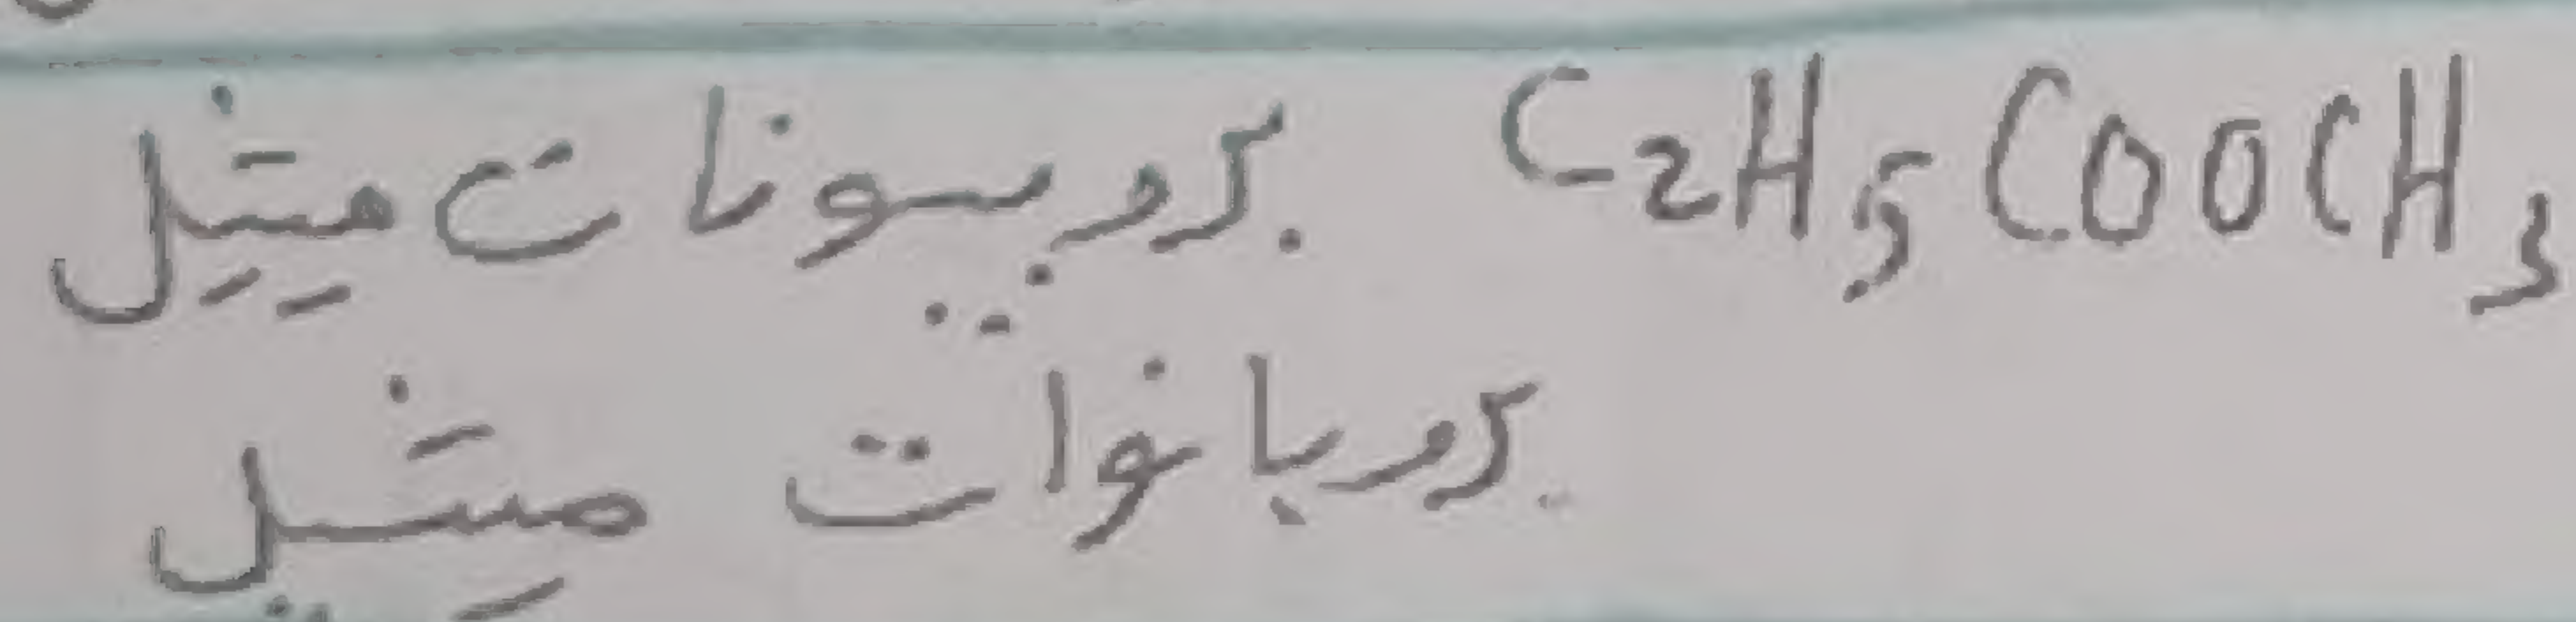 C2H5COOCH3 بروبيونات ميثيل
بروبانوات ميثيل